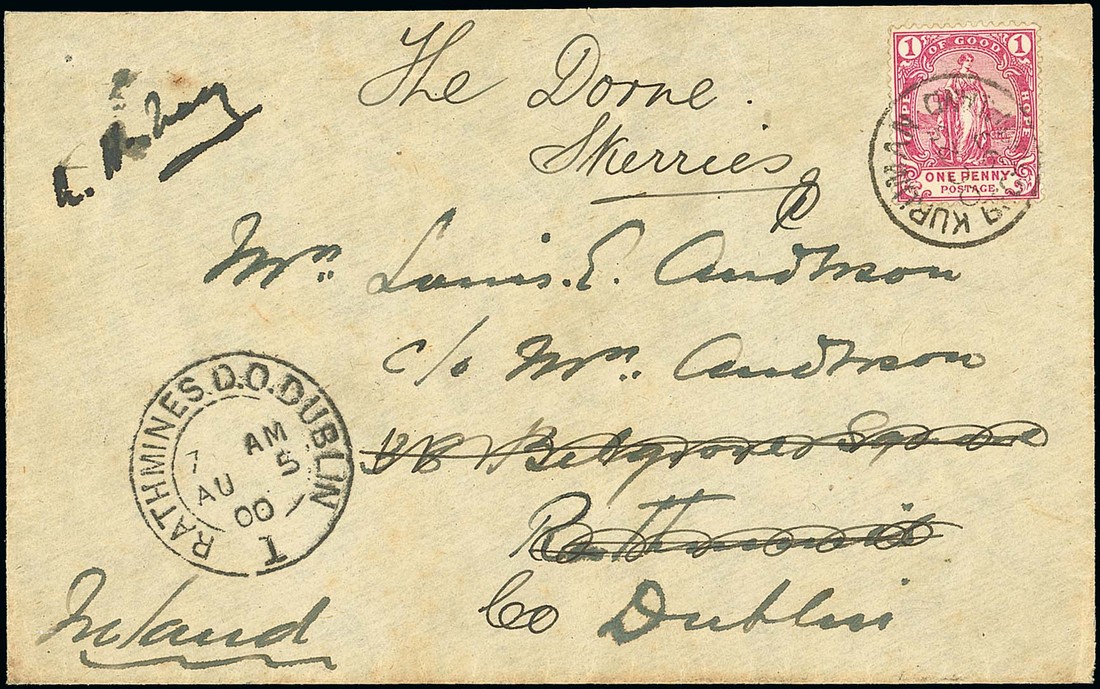 The Dorne.
Skerries
1 OF GOOD 1
HOPE
ONE PENNY
POSTAGE
KURUMAN
Mrs. Louis. E. Anderson
c/o Mrs. Anderson
Belgrave Square
Rathmines
Co Dublin
Ireland
RATHMINES. D.O. DUBLIN
AM
7 5
AU
00
T